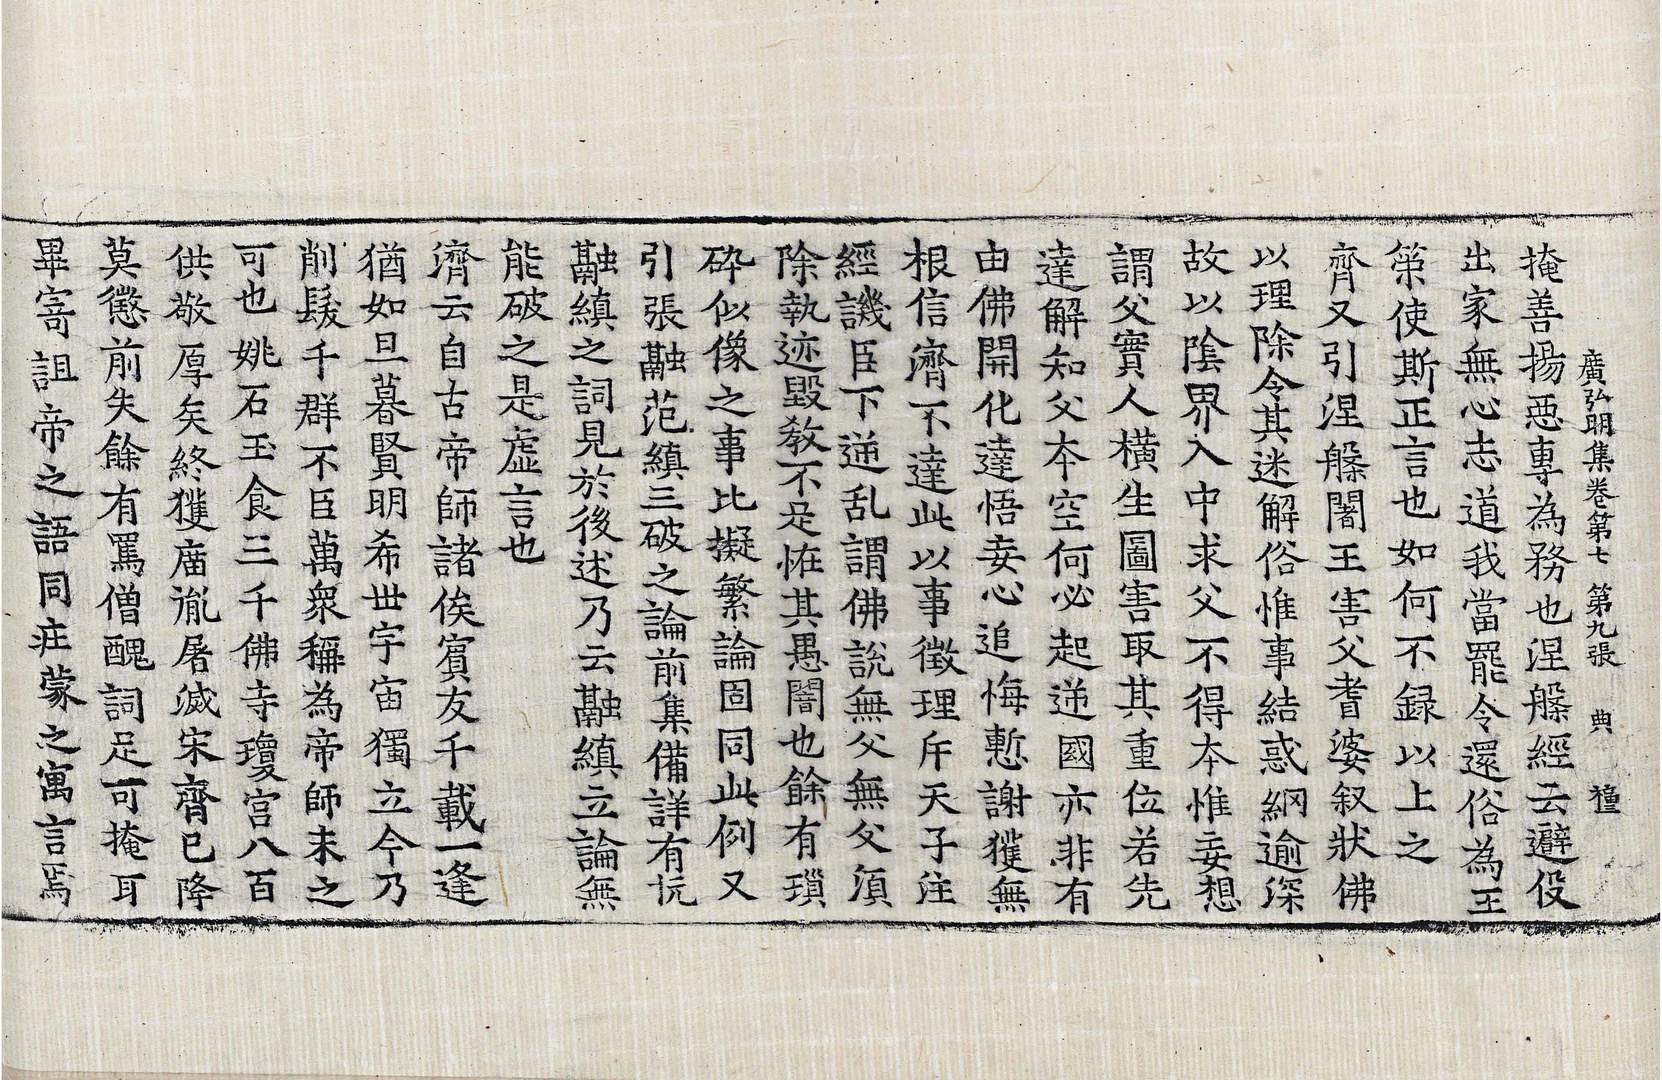 廣弘明集卷第七 第九張 典 𥡴
掩善揚惡專為務也涅槃經云避役
出家無心志道我當罷令還俗為王
策使斯正言也如何不録以上之
齊又引涅槃闍王害父耆婆叙狀佛
以理除令其迷解俗惟事結惑網逾深
故以陰界入中求父不得本惟妄想
謂父實人橫生圖害取其重位若先
達解知父本空何必起逆國亦非有
由佛開化達悟妄心追悔慙謝獲無
根信濟不達此以事徵理斥天子注
經譏臣下逆乱謂佛說無父無父須
除執迹毀教不足恠其愚闇也餘有瑣
碎似像之事比擬繁論固同此例又
引張融范縝三破之論前集備詳有抏
融縝之詞見於後述乃云融縝立論無
能破之是虛言也
濟云自古帝師諸侯賓友千載一逢
猶如旦暮賢明希世宇宙獨立今乃
削髮千群不臣萬衆稱為帝師未之
可也姚石玉食三千佛寺瓊宫八百
供敬厚矣終獲庿胤屠滅宋齊已降
莫懲前失餘有罵僧醜詞足可掩耳
畢寄詛帝之語同莊蒙之寓言焉